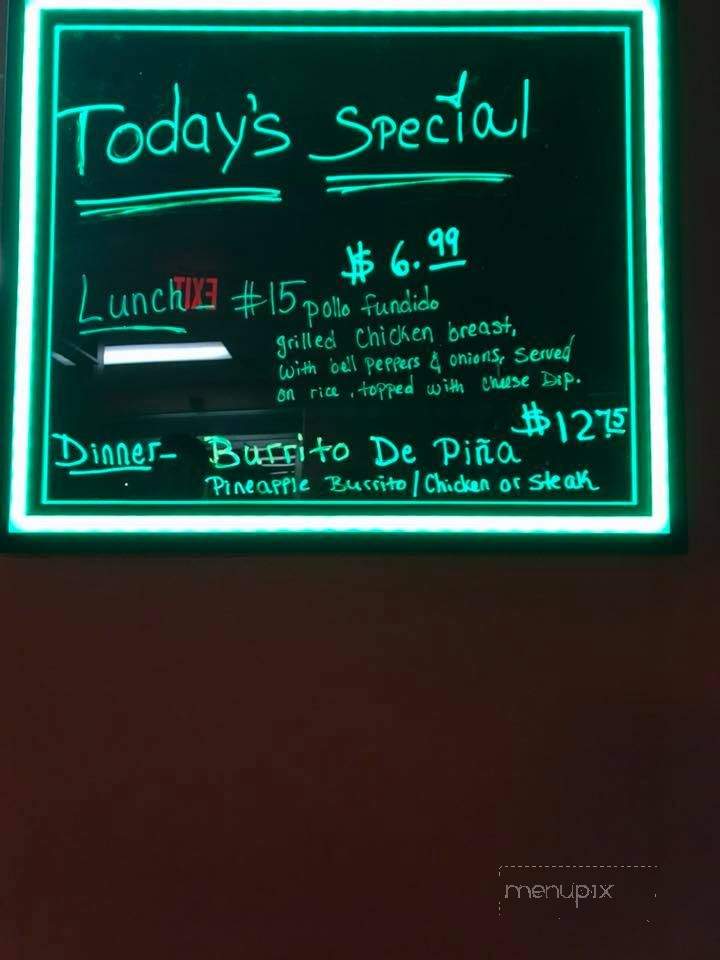 Today's Special
$ 6.99
Lunch - #15 pollo fundido
EXIT
grilled chicken breast,
with bell peppers & onions, Served
on rice, topped with cheese Dip.
$12.75
Dinner - Burrito De Piña
Pineapple Burrito/Chicken or steak
menupix